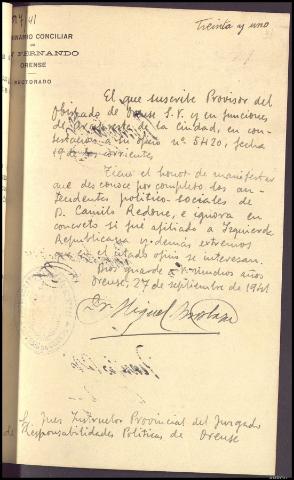 Treinta y uno
SEMINARIO CONCILIAR
DE
FERNANDO
ORENSE
RECTORADO
El que suscribe Provisor del
Obispado de Orense S.V. y en funciones
de de la ciudad, en con-
testación a su oficio nº 5420, fecha
19 de los corrientes
Tiene el honor de manifestar
que desconoce por completo los an-
tecedentes político-sociales de
D. Camilo Redone, e ignora en
concreto si fue afiliado a Izquierda
Republicana y demás extremos
que en el citado oficio se interesan.
Dios guarde a V. muchos años
Orense, 27 de septiembre de 1941
Dr. Miguel
Sr. Juez Instructor Provincial del Juzgado
de Responsabilidades Políticas de Orense